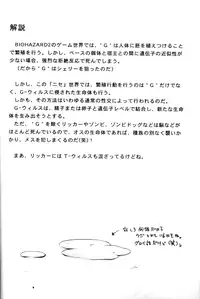 解説
BIOHAZARD2のゲーム世界では、'G'は人体に胚を植えつけること
で繁殖を行う。しかし、ベースの個体と宿主との間に遺伝子の近似性が
少ない場合、強烈な拒絶反応で死んでしまう。
(だから'G'はシェリーを狙ったのだ)
しかし、この「ニセ」世界では、繁殖行動を行うのは'G'だけでな
く、G-ウィルスに侵された生命体も行う。
しかも、その方法はいわゆる通常の性交によって行われるのだ。
G-ウィルスは、精子または卵子と遺伝子レベルで結合し、新たな生命
体を生み出そうとする。
ただ、'G'を除くリッカーやゾンビ、ゾンビドッグなどは脳などが
ほとんど死んでいるので、オスの生命体であれば、種族の別なく襲いか
かり、メスを犯しまくるのだ(笑)!
まあ、リッカーには T-ウィルスも混ざってるけどね。